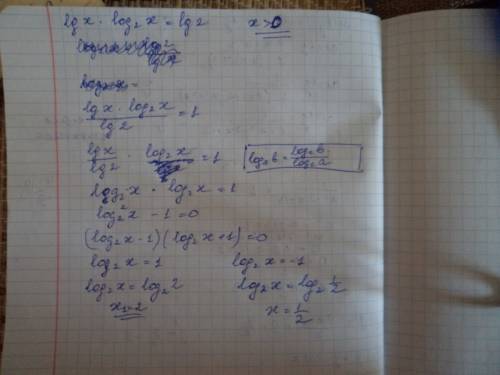 lg x · log₂ x = lg 2     x > 0
lg x · log₂ x / lg 2 = 1
lg x / lg 2 · log₂ x = 1     logₐ b = log꜀ b / log꜀ a
log₂ x · log₂ x = 1
log₂² x - 1 = 0
(log₂ x - 1)(log₂ x + 1) = 0
log₂ x = 1     log₂ x = -1
log₂ x = log₂ 2     log₂ x = log₂ 1/2
x₁ = 2     x = 1/2